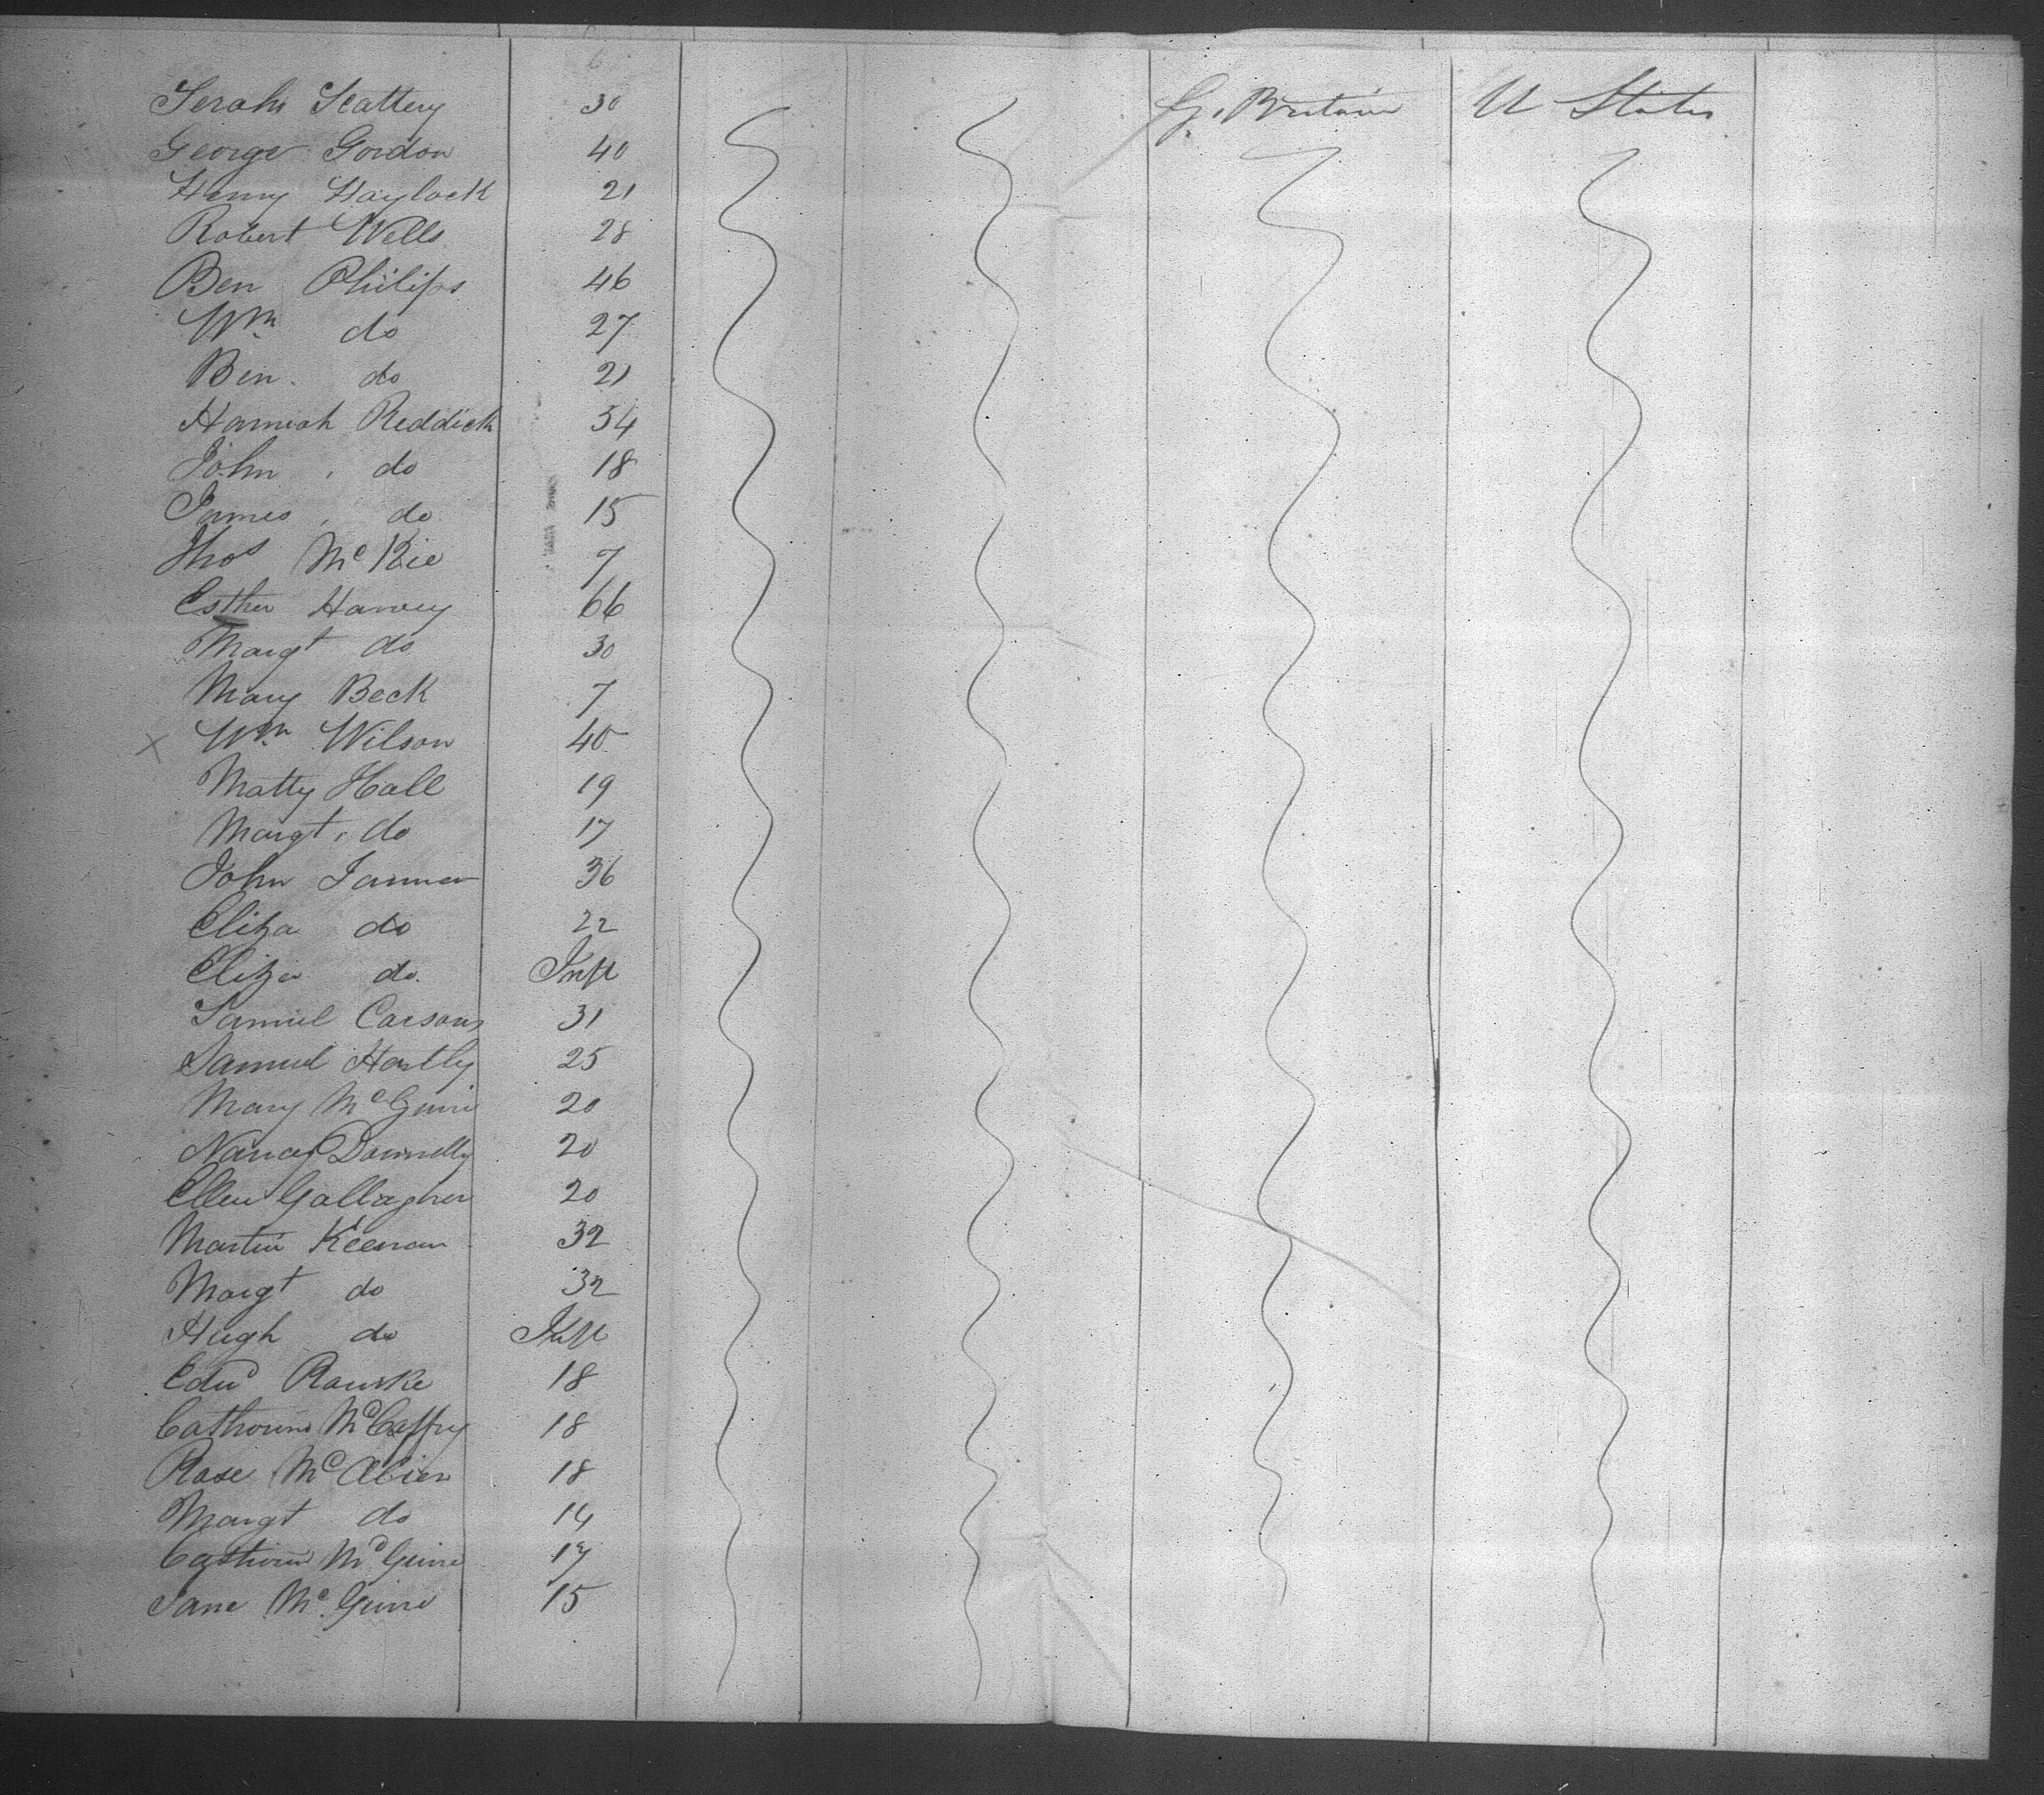 Serah Slattery 30 G. Britain U States
George Gordon 40
Henry Haylock 21
Robert Wells 28
Ben Philips 46
Wm do 27
Ben. do 21
Hannah Reddick 54
John . do 18
James . do 15
Thos McKie 7
Esther Harvey 66
Margt do 30
Mary Beck 7
X Wm Wilson 40
Matty Hall 19
Margt. do 17
John 36
Eliza do 22
Eliza do. Inft
Samuel Carsons 31
Samuel Hartly 25
Mary McGuire 20
Nancy Donnelly 20
Ellen Gallagher 20
Martin Keenan 32
Margt do 32
Hugh do Inft
Edwd Rourke 18
Catherine McCaffry 18
Rose 18
Margt do 14
Catherine McGuire 17
Jane McGuire 15